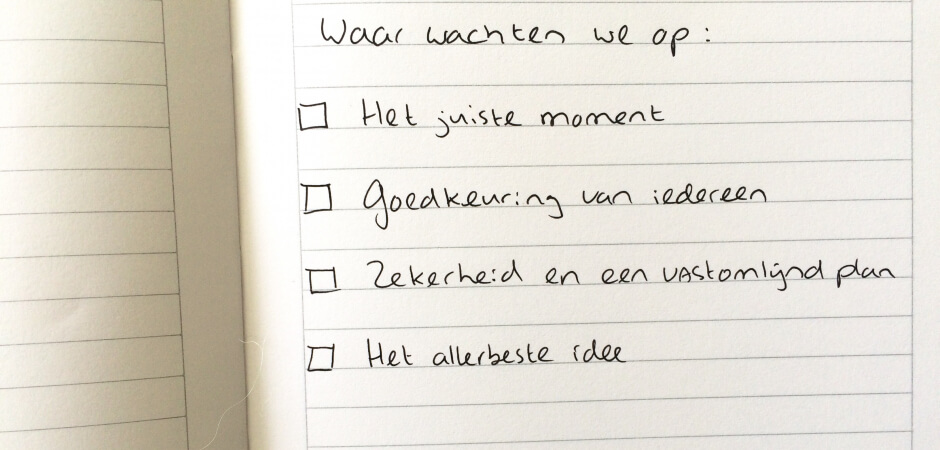 Waar wachten we op:
Het juiste moment
Goedkeuring van iedereen
Zekerheid en een vastomlijnd plan
Het allerbeste idee